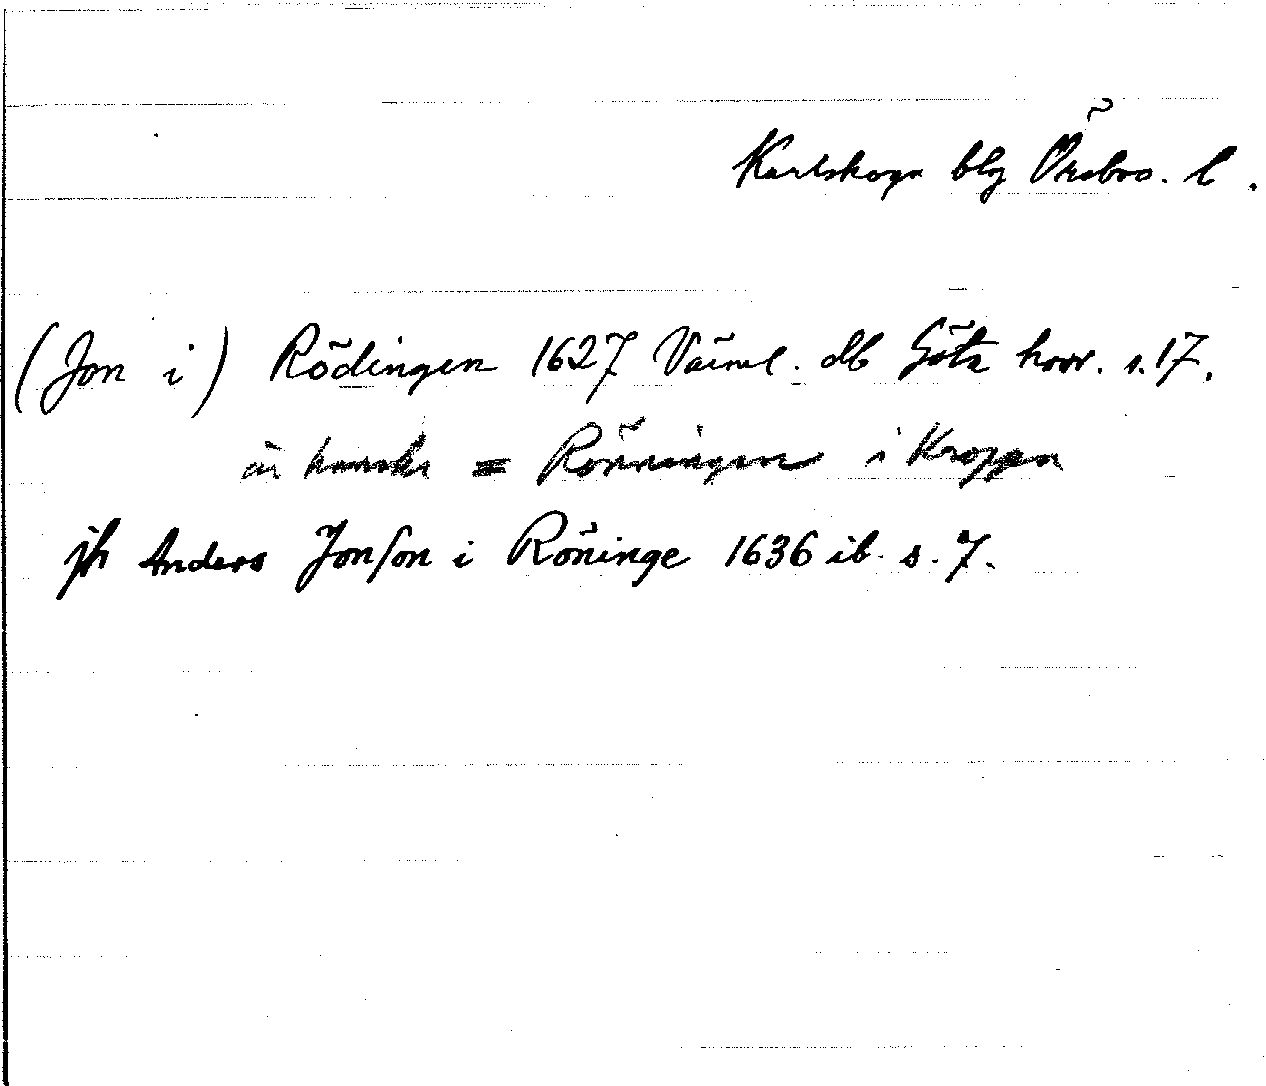 Karlskoga blg Örebro. l.
(Jon i) Rödingen 1627 Värml. db Göta hovr. s. 17.
är kanske = Rönningen i Kroppa
jfr Anders Jonson i Röninge 1636 ib. s. 7.